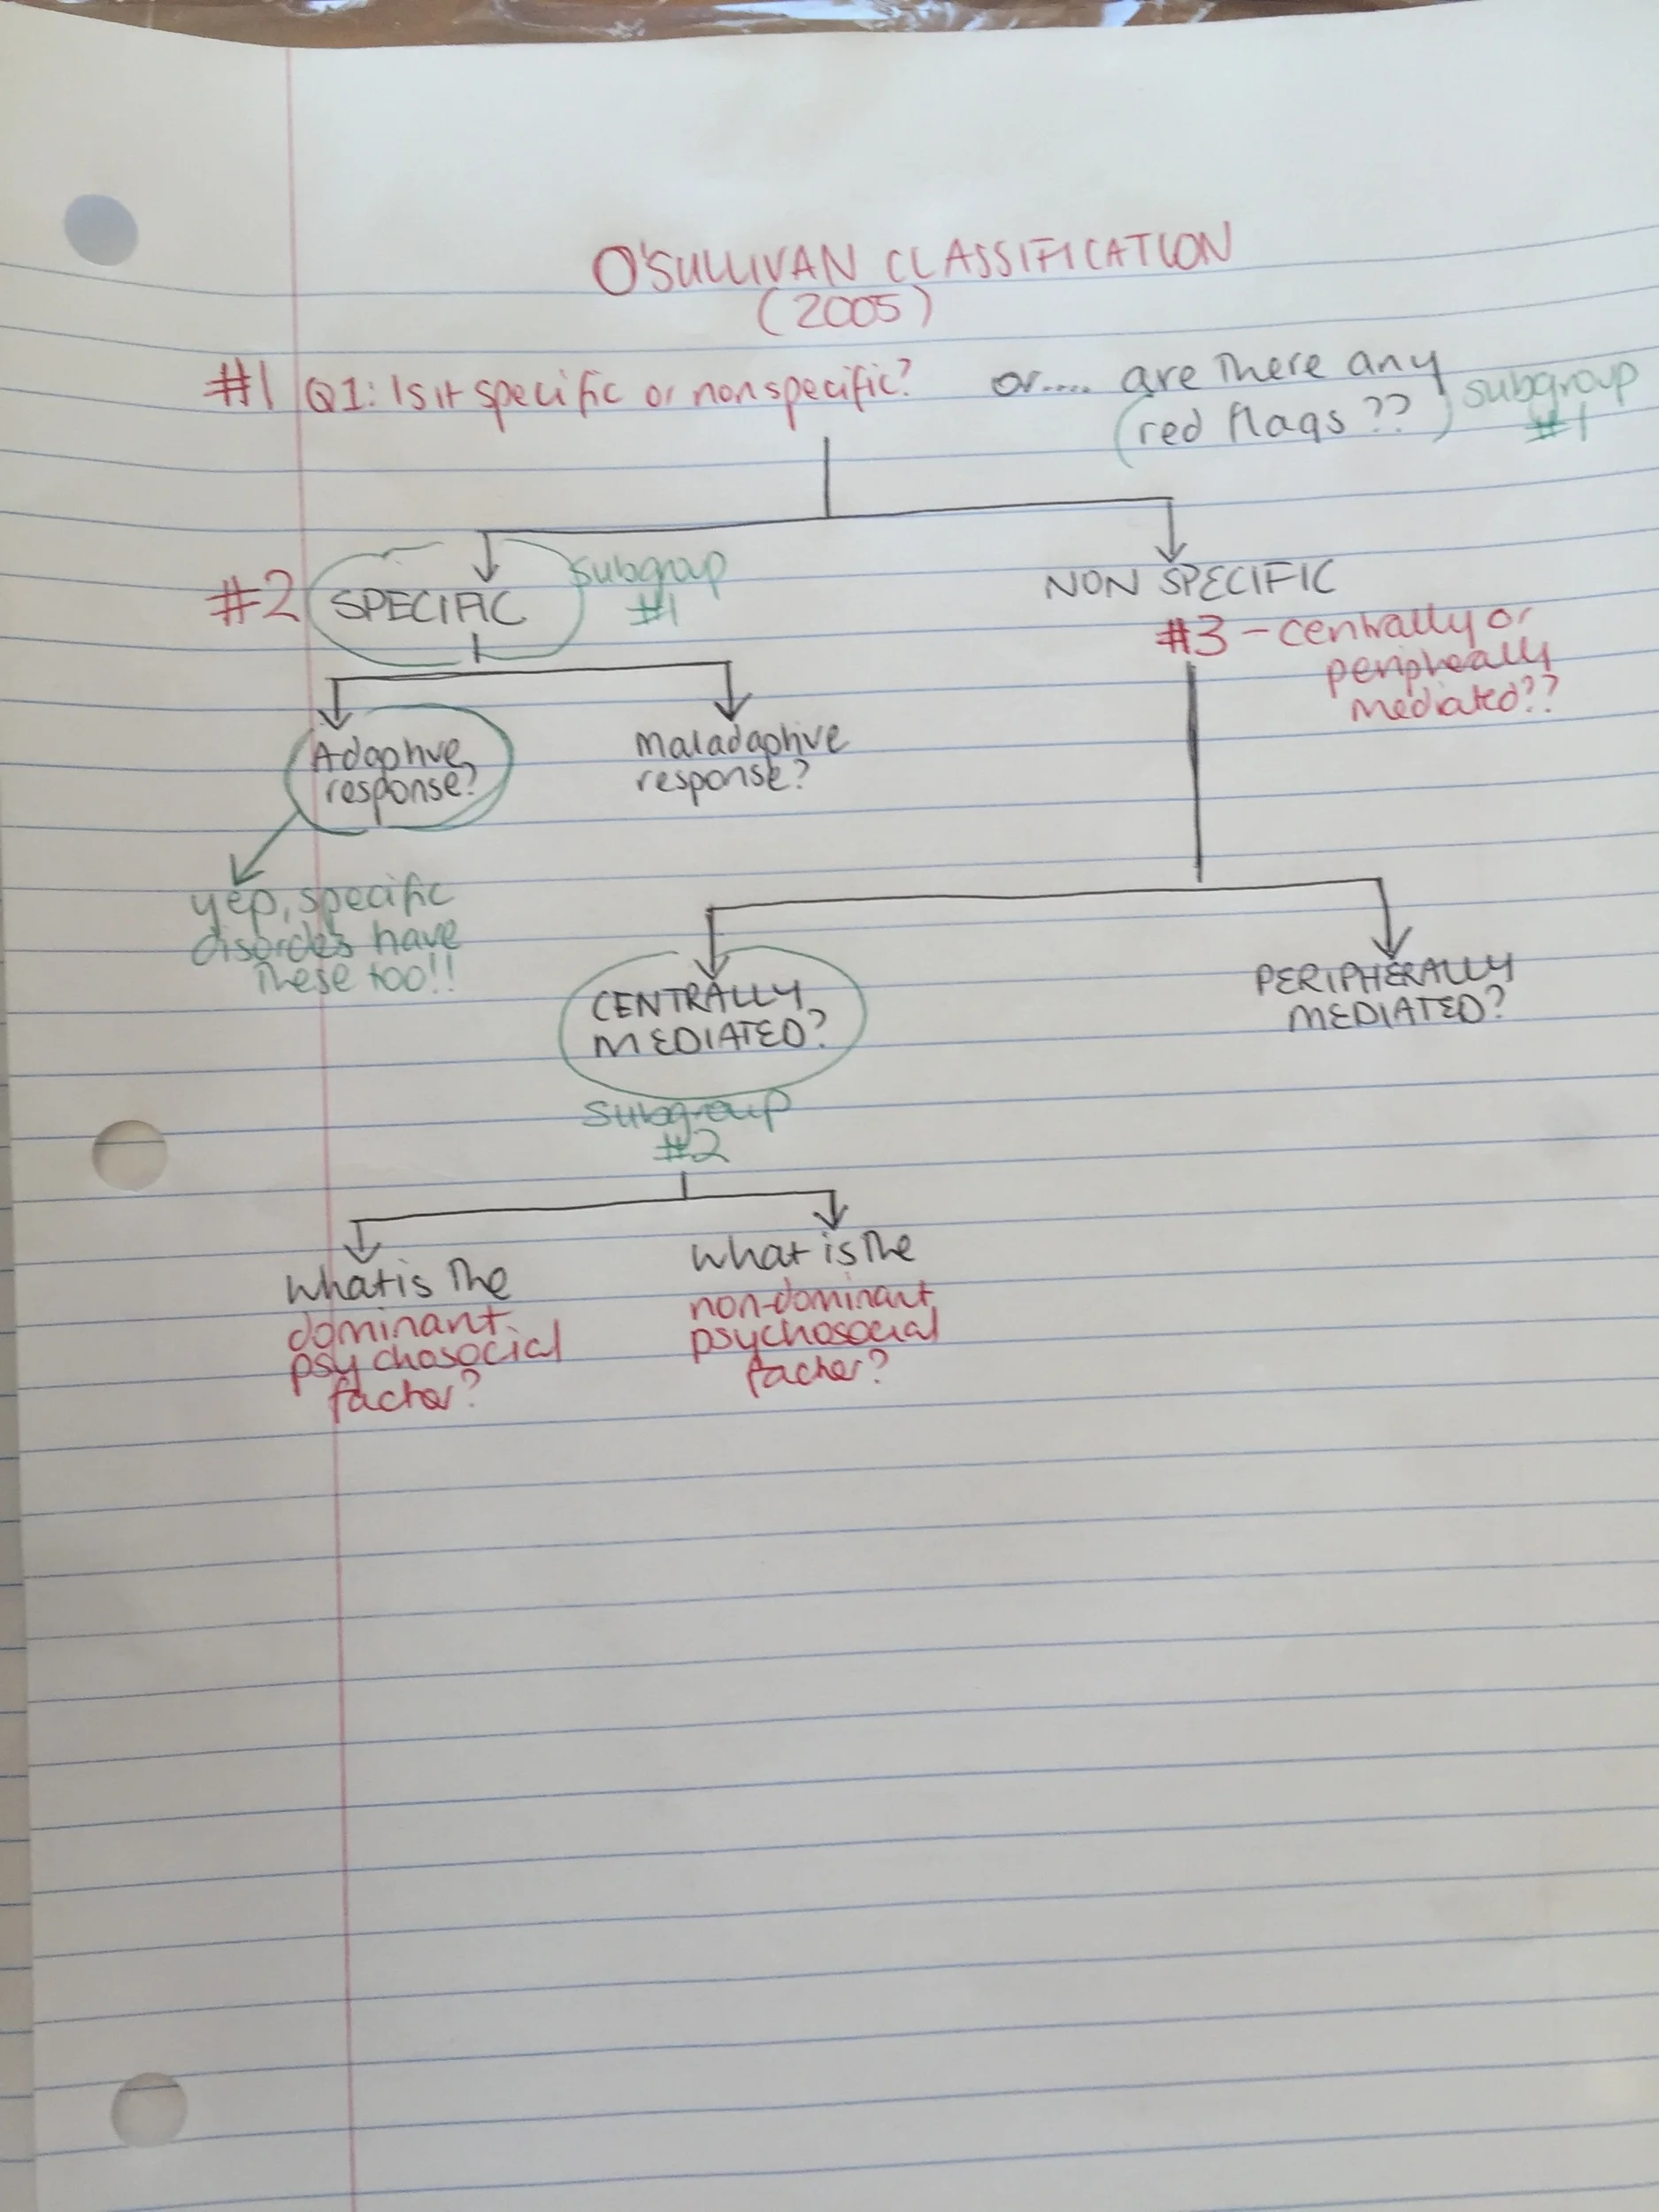 O'SULLIVAN CLASSIFICATION
(2005)
#1 Q1: Is it specific or nonspecific? or.... are there any
(red flags??) subgroup
#1
#2 SPECIFIC subgroup
#1
NON SPECIFIC
#3 - centrally or
peripherally
mediated??
Adaptive
response?
Maladaptive
response?
yep, specific
disorders have
these too!!
CENTRALLY
MEDIATED?
PERIPHERALLY
MEDIATED?
subgroup
#2
What is the
dominant
psychosocial
factor?
What is the
non-dominant
psychosocial
factor?